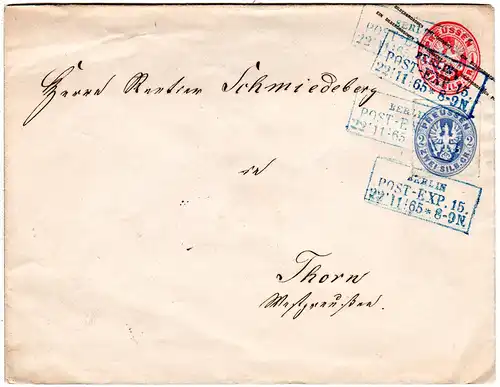 EIN SILBERGROSCHEN
PREUSSEN
BERLIN
POST-EXP. 15.
22 11. 65 * 8-9N.
Herrn Rentier Schmiedeberg
BERLIN
POST-EXP
22 11. 65
PREUSSEN
ZWEI SILB. GR.
in
BERLIN
POST-EXP. 15.
22 11. 65 * 8-9N.
Thorn
Westpreußen